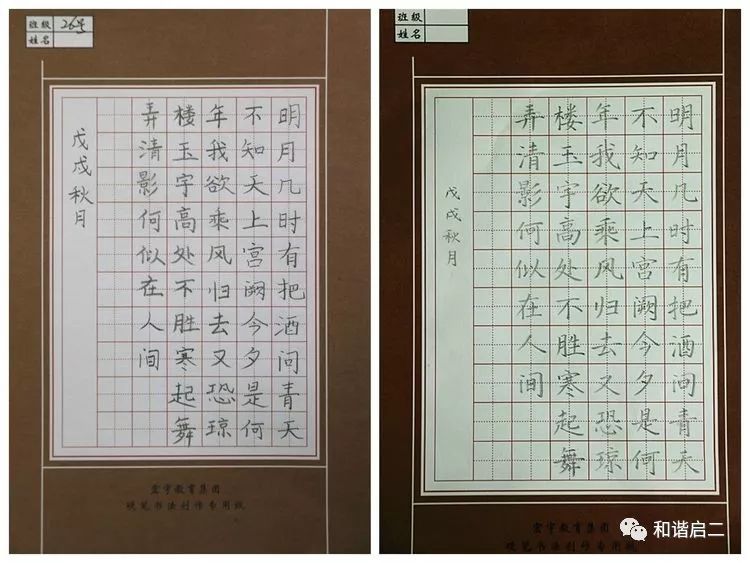 班级 26号
姓名
明月几时有把酒问青天
不知天上宫阙今夕是何
年我欲乘风归去又恐琼
楼玉宇高处不胜寒起舞
弄清影何似在人间
戊戌秋月
宇教育集团
硬笔书法创作专用纸
班级
姓名
明月几时有把酒问青天
不知天上宫阙今夕是何
年我欲乘风归去又恐琼
楼玉宇高处不胜寒起舞
弄清影何似在人间
戊戌秋月
宇教育集团
硬笔书法创作专用纸
和谐启二